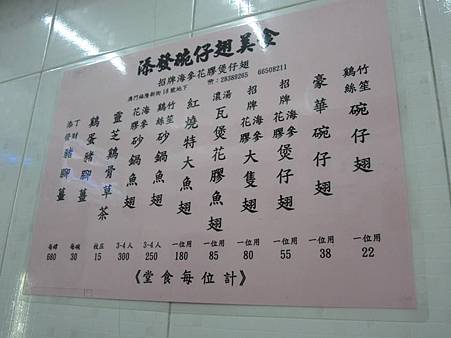 添發碗仔翅美食
招牌海參花膠煲仔翅
澳門福隆新街18號地下 ☏：28389265 66508211
鷄絲竹笙碗仔翅
一位用
22
豪華碗仔翅
一位用
38
招牌花膠海參煲仔翅
一位用
55
招牌花膠海參大隻翅
一位用
80
濃湯瓦煲花膠魚翅
一位用
85
紅燒特大魚翅
一位用
180
鷄絲竹笙砂鍋魚翅
3-4人
250
花膠海參砂鍋魚翅
3-4人
300
靈芝鷄骨草茶
枝庄
15
鷄蛋豬腳薑
每碗
30
添丁發財豬腳薑
每罉
680
《堂食每位計》